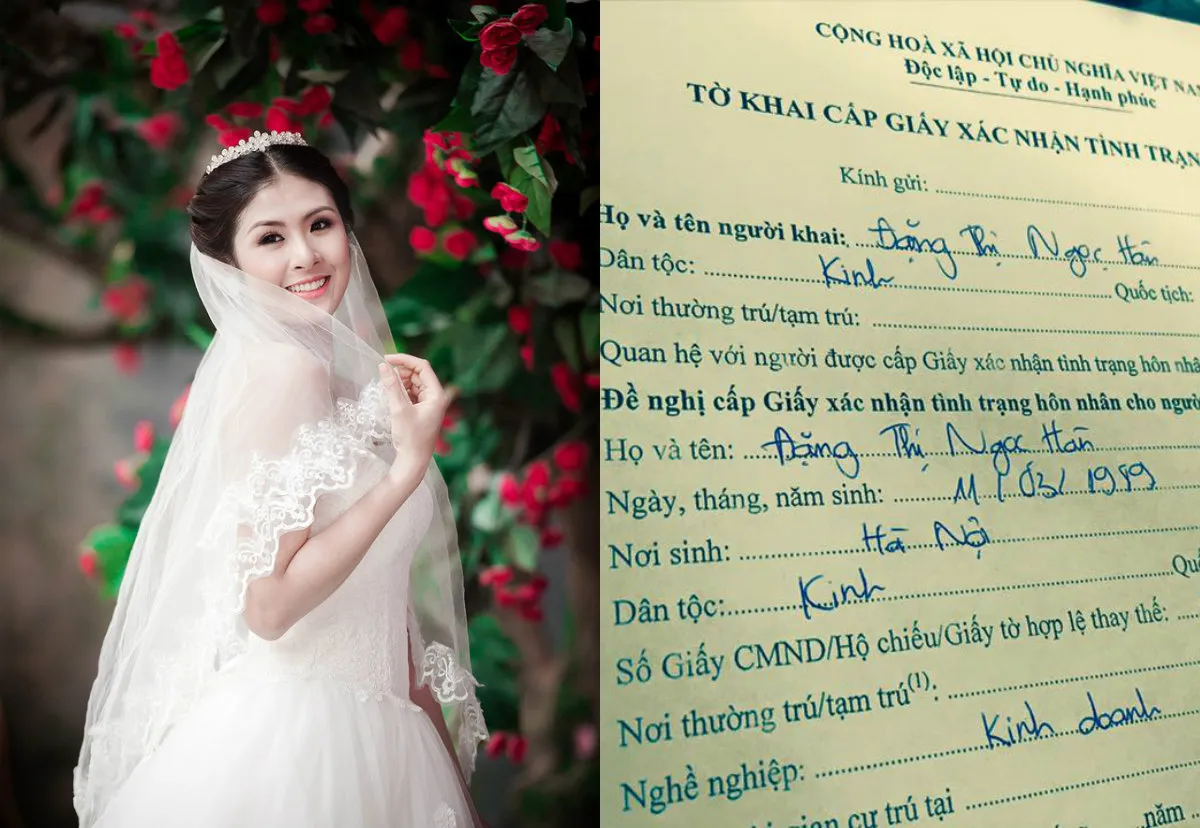 CỘNG HOÀ XÃ HỘI CHỦ NGHĨA VIỆT NAM
Độc lập - Tự do - Hạnh phúc
TỜ KHAI CẤP GIẤY XÁC NHẬN TÌNH TRẠN
Kính gửi:
Họ và tên người khai: Đặng Thị Ngọc Hân
Dân tộc: Kinh Quốc tịch:
Nơi thường trú/tạm trú:
Quan hệ với người được cấp Giấy xác nhận tình trạng hôn nhâ
Đề nghị cấp Giấy xác nhận tình trạng hôn nhân cho người
Họ và tên: Đặng Thị Ngọc Hân
Ngày, tháng, năm sinh: 11/03/1989
Nơi sinh: Hà Nội
Dân tộc: Kinh Qu
Số Giấy CMND/Hộ chiếu/Giấy tờ hợp lệ thay thế:
Nơi thường trú/tạm trú(1):
Nghề nghiệp: Kinh doanh
gian cư trú tại
năm